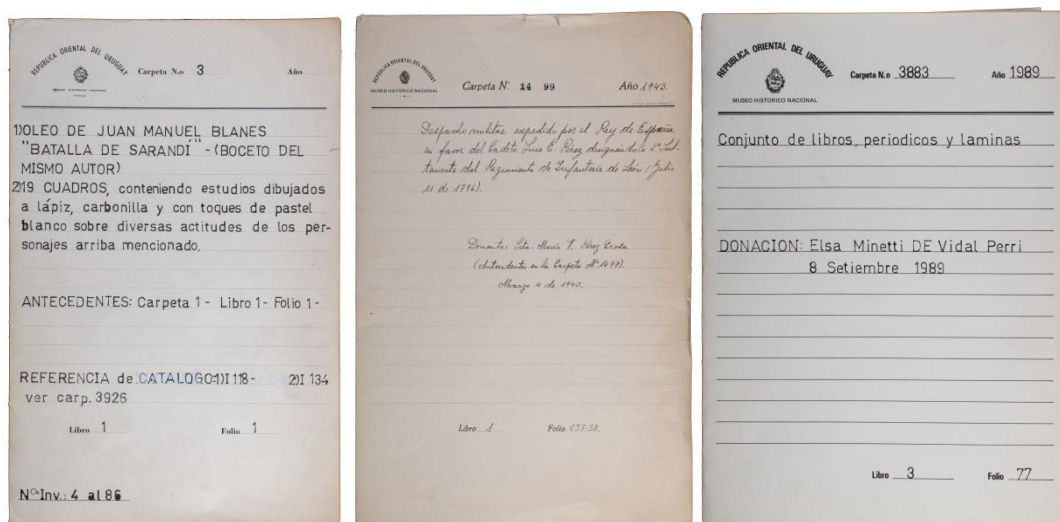 REPUBLICA ORIENTAL DEL URUGUAY
Carpeta N.o 3 Año
1)OLEO DE JUAN MANUEL BLANES
"BATALLA DE SARANDÍ" -(BOCETO DEL
MISMO AUTOR)
2)19 CUADROS, conteniendo estudios dibujados
a lápiz, carbonilla y con toques de pastel
blanco sobre diversas actitudes de los per-
sonajes arriba mencionado.
ANTECEDENTES: Carpeta 1 - Libro 1 - Folio 1 -
REFERENCIA de CATALOGO:1)I 118- 2)I 134
ver carp. 3926
Libro 1 Folio 1
Nos Inv.: 4 al 86
REPUBLICA ORIENTAL DEL URUGUAY
MUSEO HISTORICO NACIONAL
Carpeta N.o 14 99 Año 1943.
Despacho militar expedido por el Rey de España
en favor del Cadete Luis E. Pérez designándolo 2º Sub
teniente del Regimiento de Infantería de León (Julio
11 de 1796).
Donante: Srta. María V. Pérez
(Antecedentes en la Carpeta Nº 1498).
Marzo 4 de 1943.
Libro 1 Folio 237-38.
REPUBLICA ORIENTAL DEL URUGUAY
MUSEO HISTORICO NACIONAL
Carpeta N.o 3883 Año 1989
Conjunto de libros, periodicos y laminas
DONACION: Elsa Minetti DE Vidal Perri
8 Setiembre 1989
Libro 3 Folio 77